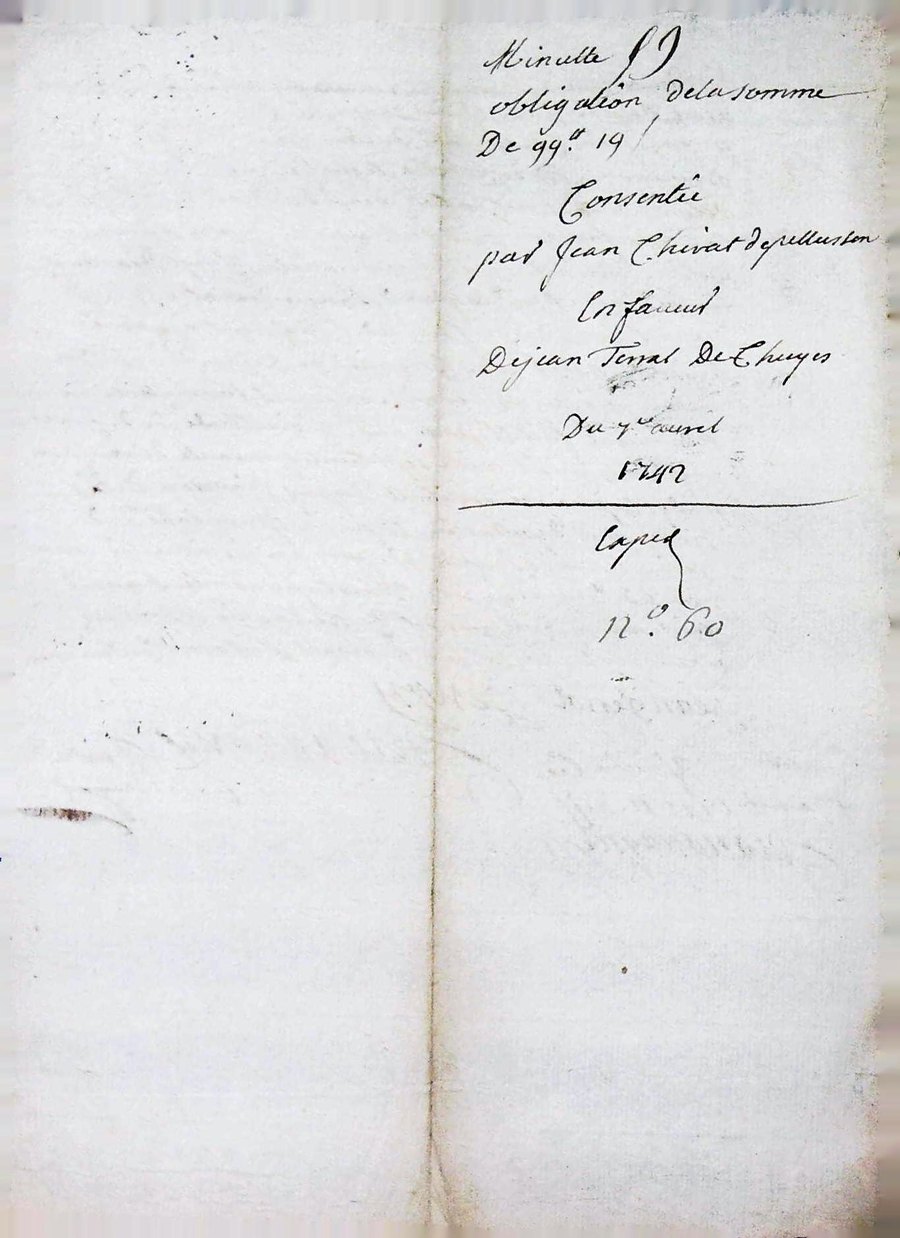 Minutte
obligation dela somme
De 99tt 19 s
Consentie
par Jean Chirat depellusson
En faueur
De jean Terrat De Chuyes
Du 7e auril
1742
Exped
n° 60